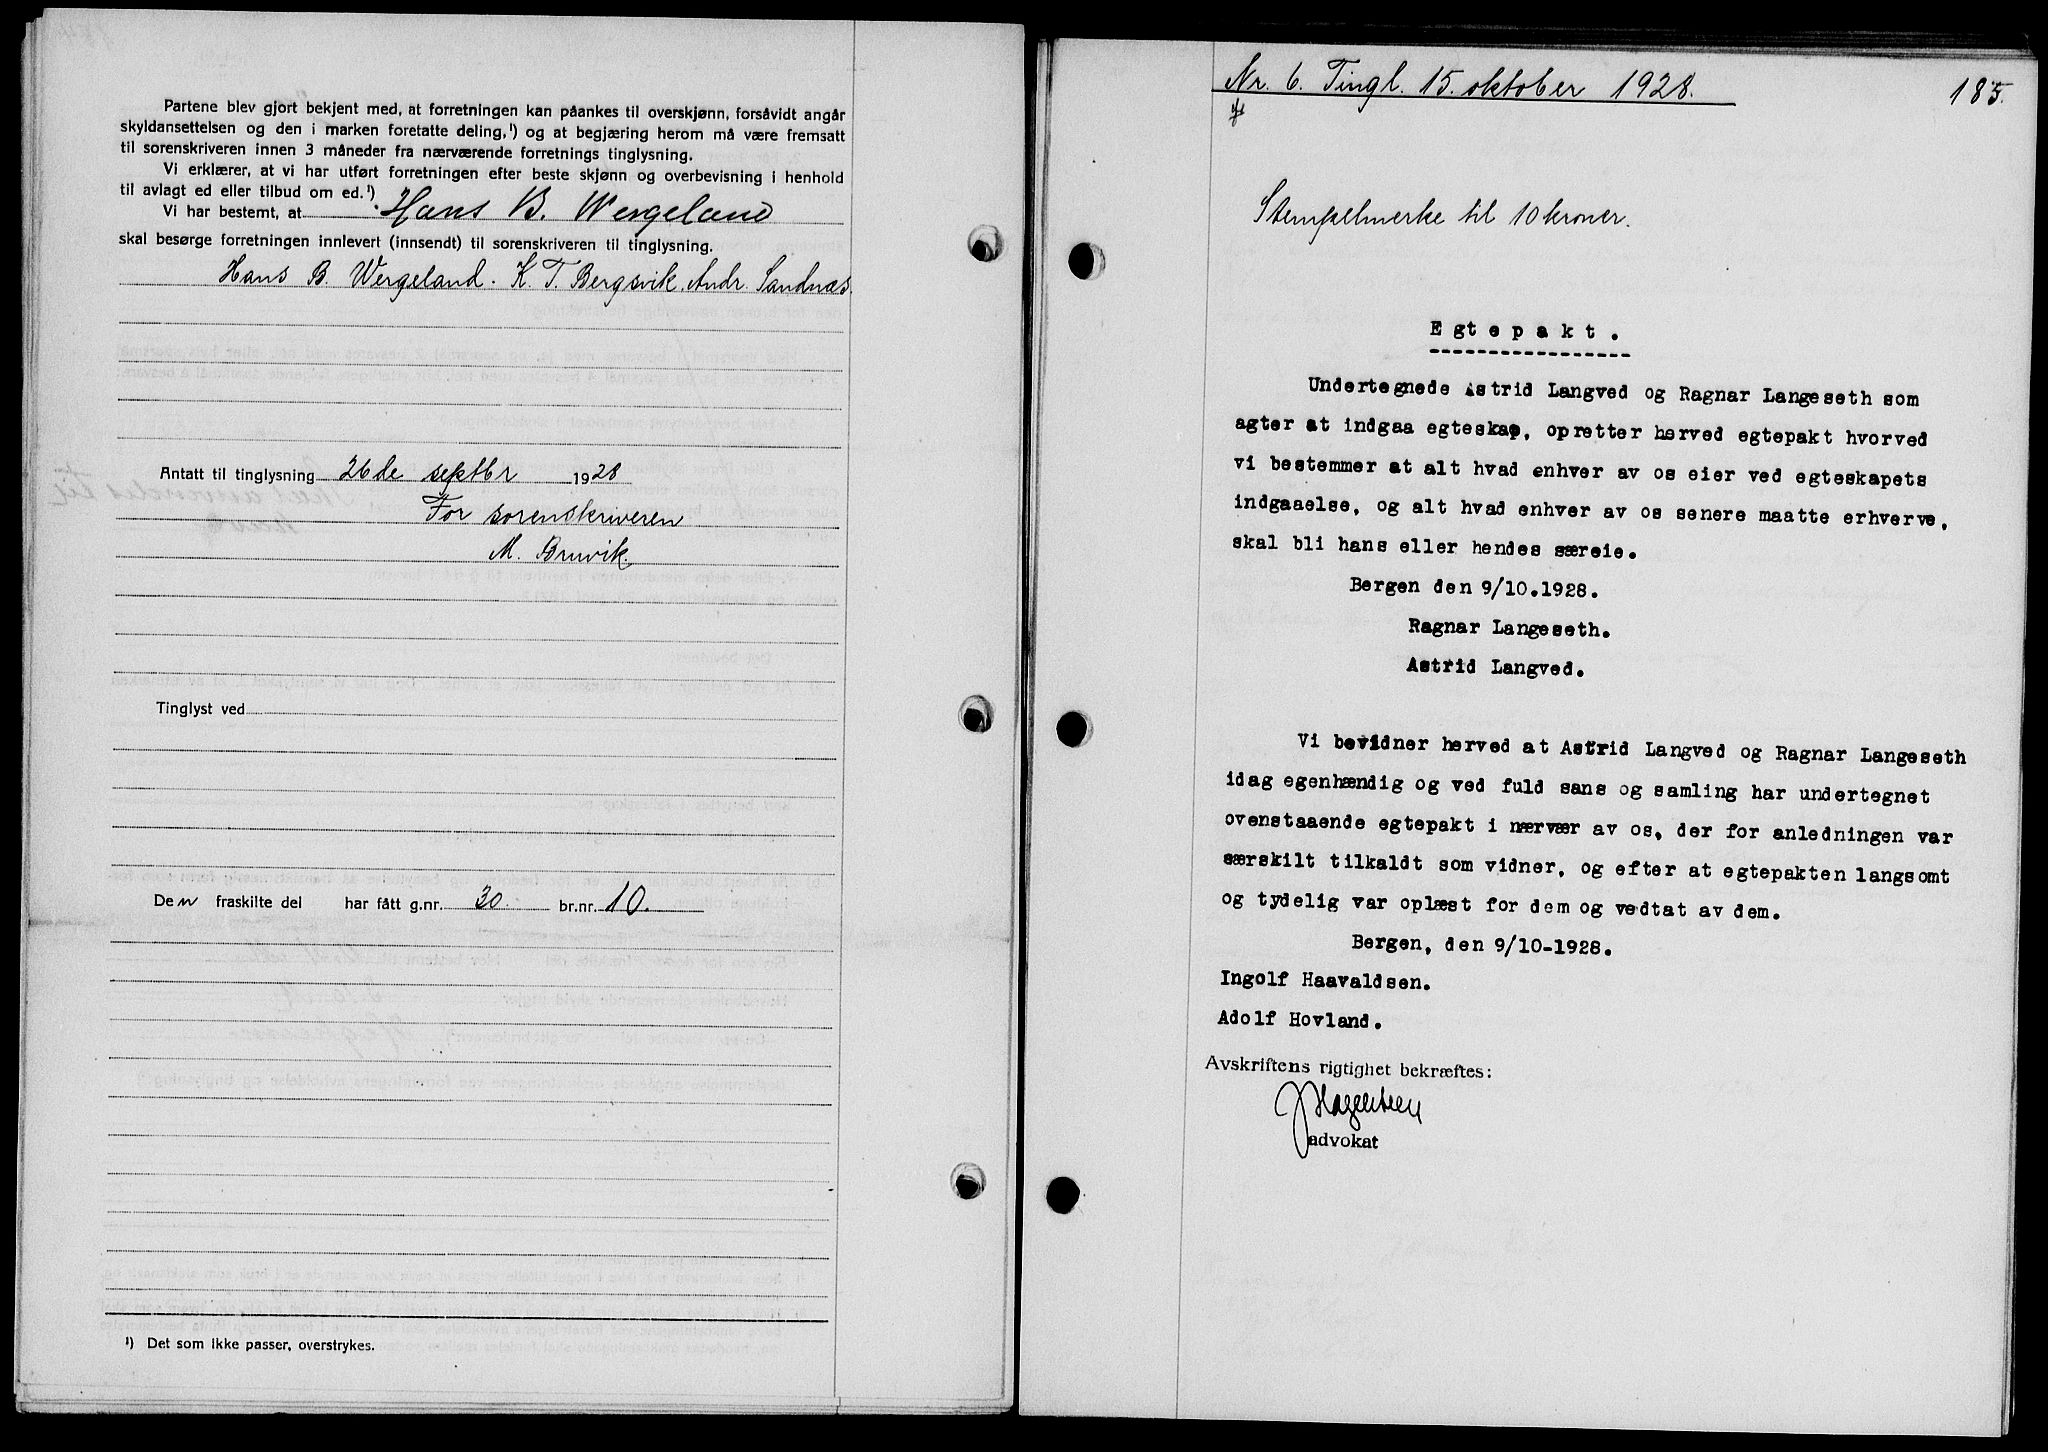 Partene blev gjort bekjent med, at forretningen kan påankes til overskjønn, forsåvidt angår
skyldansettelsen og den i marken foretatte deling,¹) og at begjæring herom må være fremsatt
til sorenskriveren innen 3 måneder fra nærværende forretnings tinglysning.
Vi erklærer, at vi har utført forretningen efter beste skjønn og overbevisning i henhold
til avlagt ed eller tilbud om ed.¹)
Vi har bestemt, at Hans B. Wergeland
skal besørge forretningen innlevert (innsendt) til sorenskriveren til tinglysning.
Hans B. Wergeland. K. T. Bergsvik. Andr. Sandnæs.
Antatt til tinglysning 26de septbr 1928
For sorenskriveren
M. Bruvik.
Tinglyst ved
Den fraskilte del har fått g.nr. 30. br.nr. 10.
¹) Det som ikke passer, overstrykes.
Nr. 6. Tingl. 15. oktober 1928.
185.
Stempelmerke til 10 kroner.
Egtepakt.
Undertegnede Astrid Langved og Ragnar Langeseth som
agter at indgaa egteskap, opretter herved egtepakt hvorved
vi bestemmer at alt hvad enhver av os eier ved egteskapets
indgaaelse, og alt hvad enhver av os senere maatte erhverve,
skal bli hans eller hendes særeie.
Bergen den 9/10.1928.
Ragnar Langeseth.
Astrid Langved.
Vi bevidner herved at Astrid Langved og Ragnar Langeseth
idag egenhændig og ved fuld sans og samling har undertegnet
ovenstaaende egtepakt i nærvær av os, der for anledningen var
særskilt tilkaldt som vidner, og efter at egtepakten langsomt
og tydelig var oplæst for dem og vedtat av dem.
Bergen, den 9/10-1928.
Ingolf Haavaldsen.
Adolf Hovland.
Avskriftens rigtighet bekræftes:
advokat